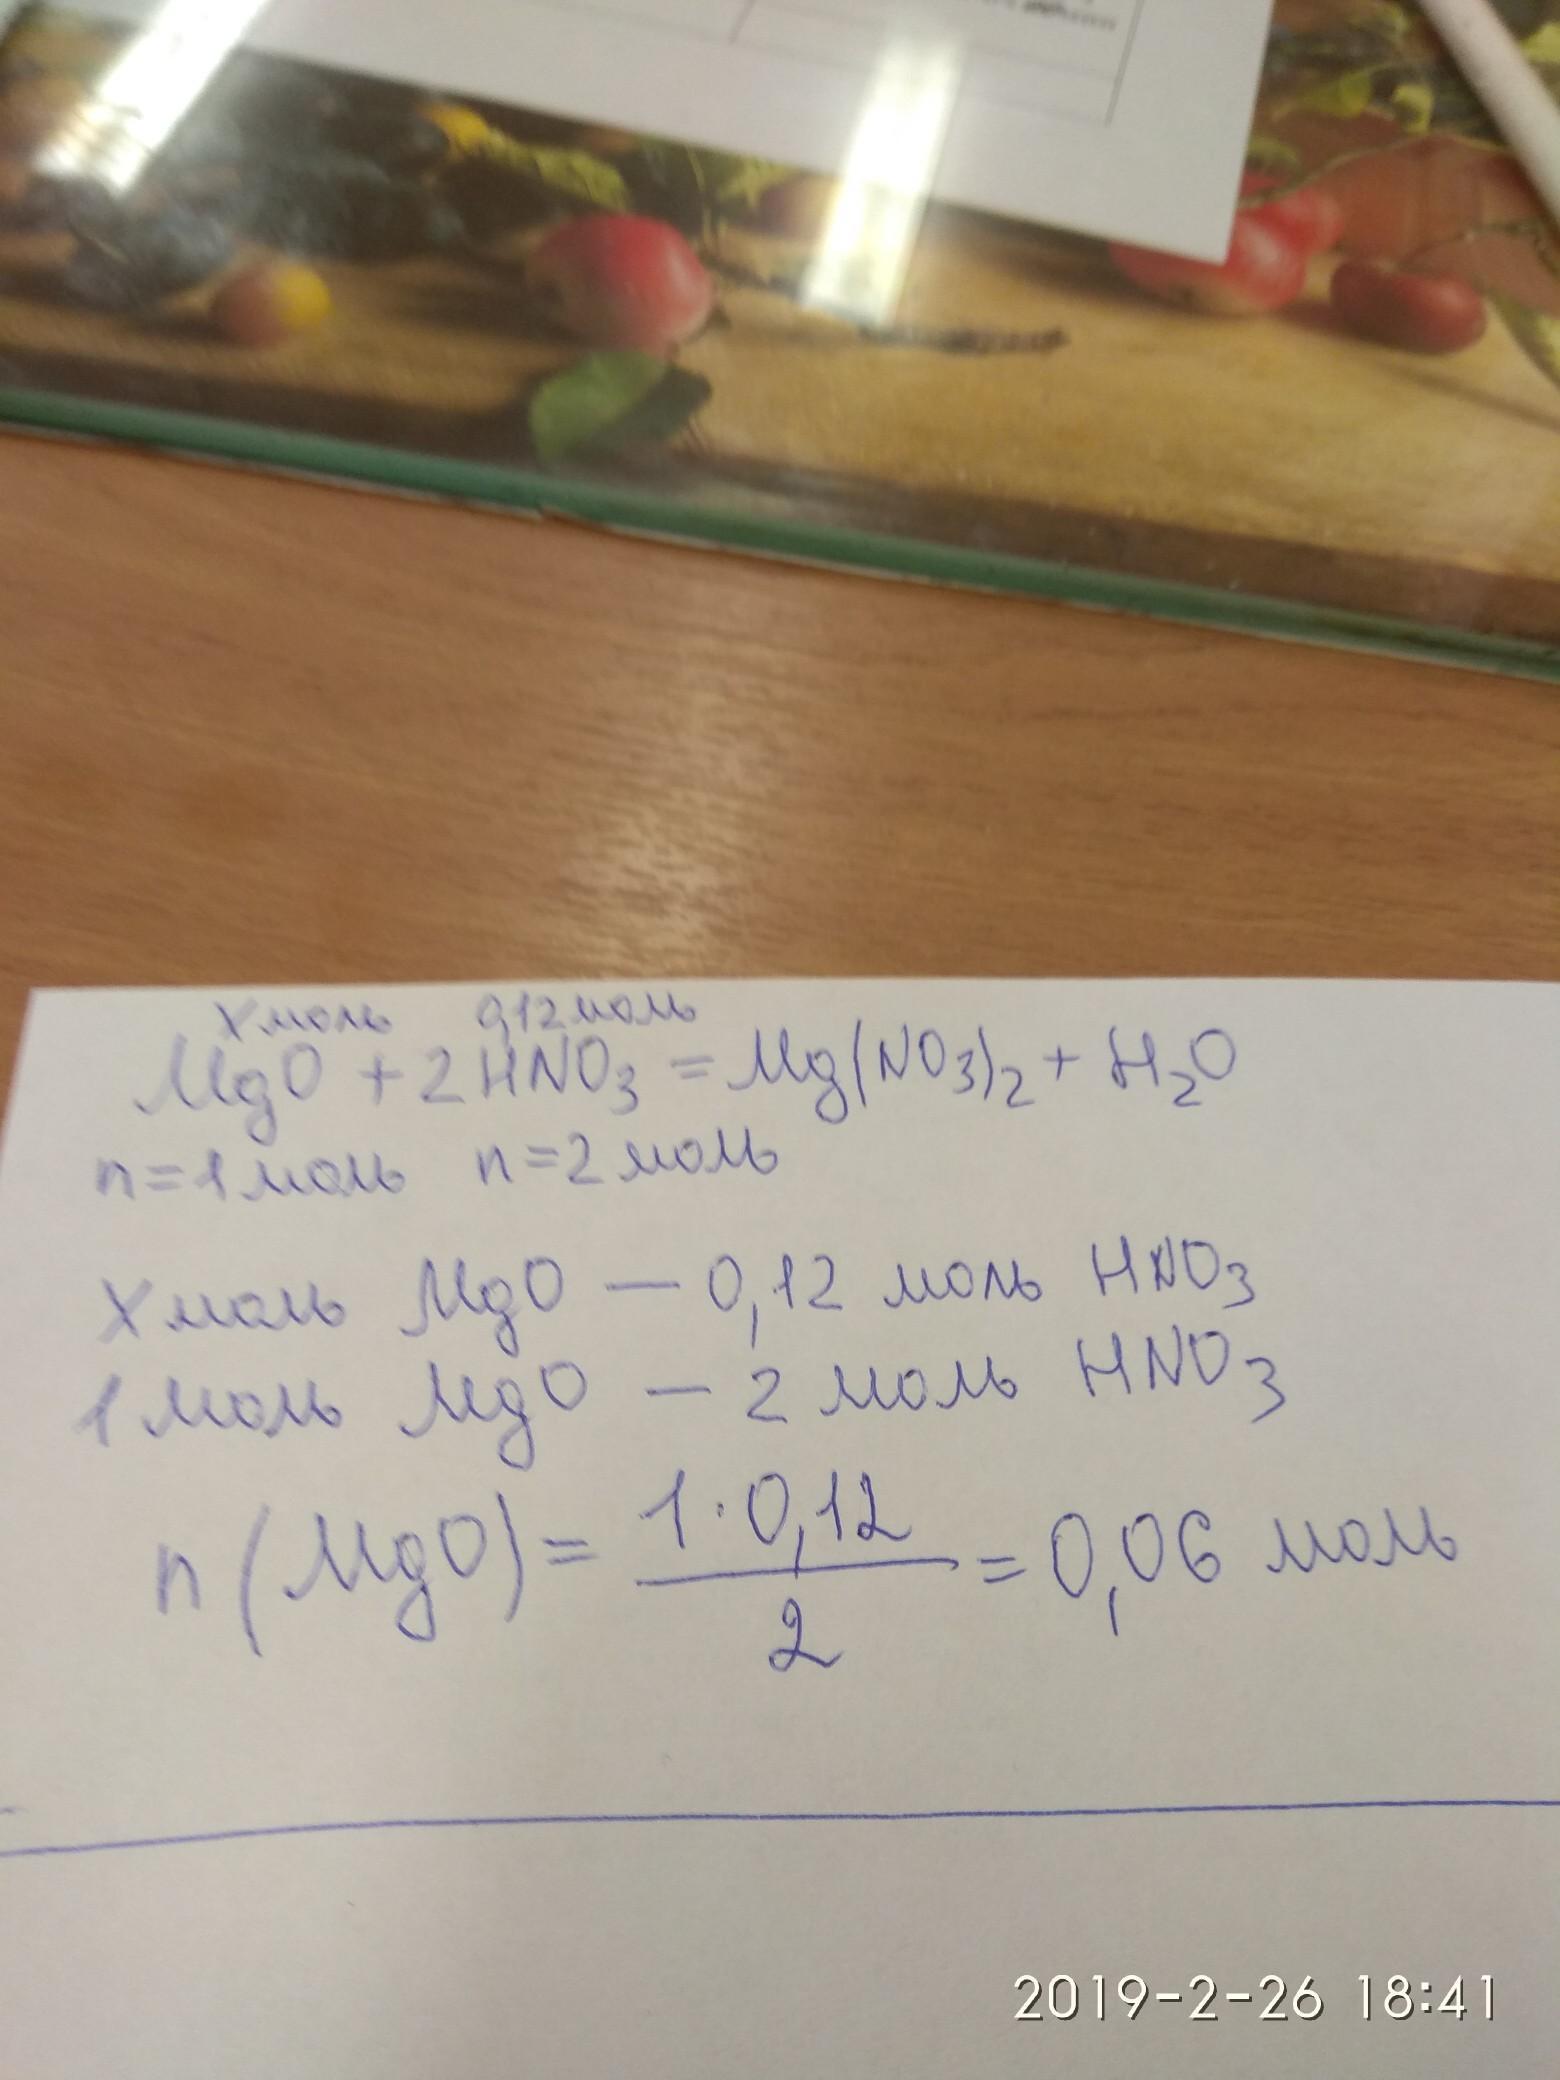 X моль 0,12 моль
MgO + 2HNO3 = Mg(NO3)2 + H2O
n=1моль n=2 моль
X моль MgO — 0,12 моль HNO3
1 моль MgO — 2 моль HNO3
n(MgO) = 1·0,12 / 2 = 0,06 моль
2019-2-26 18:41